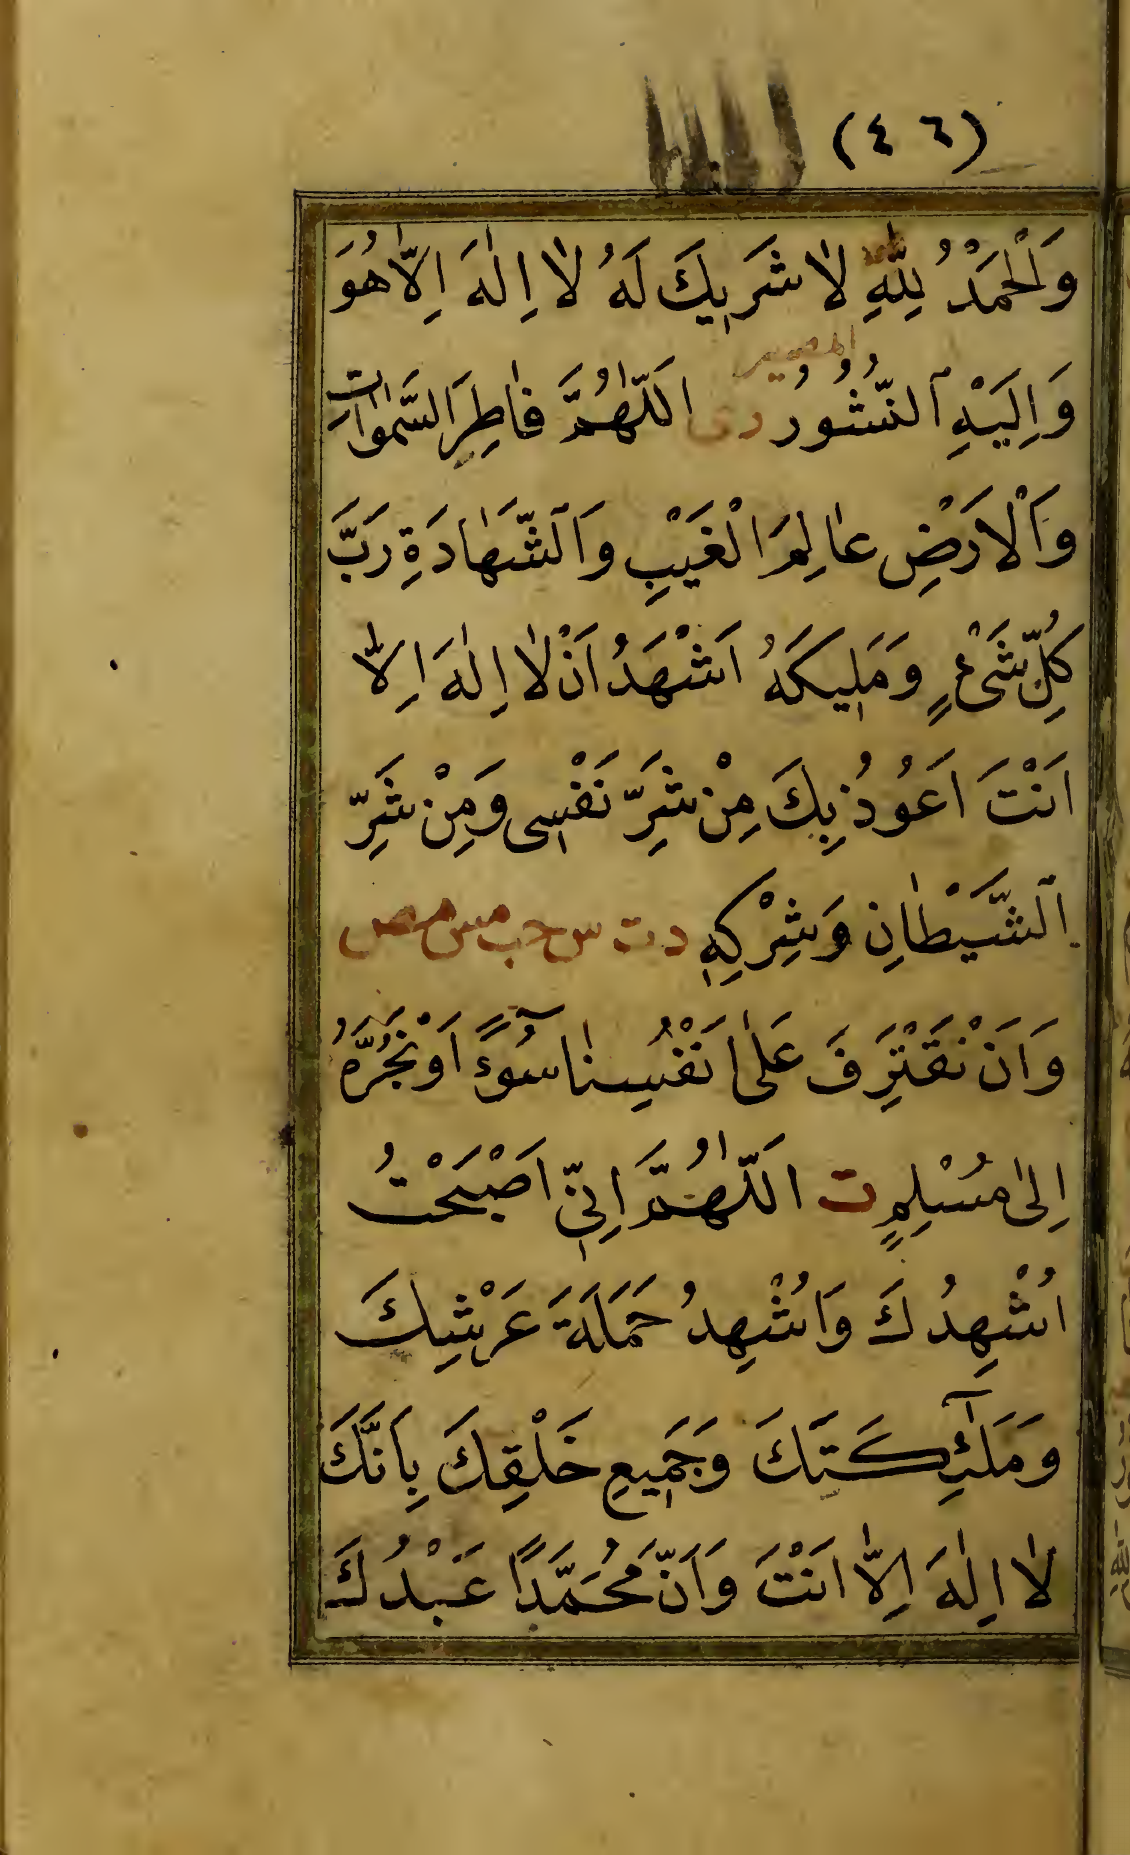 (٤٦)
وَالْحَمْدُ لِلّٰهِ لَا شَرِيكَ لَهُ لَا اِلٰهَ اِلَّا هُوَ
المصير
وَاِلَيْهِ النُّشُورُ دى اَللّٰهُمَّ فَاطِرَ السَّمٰوَاتِ
وَالْاَرْضِ عَالِمَ الْغَيْبِ وَالشَّهَادَةِ رَبَّ
كُلِّ شَيْءٍ وَمَلِيكَهُ اَشْهَدُ اَنْ لَا اِلٰهَ اِلَّا
اَنْتَ اَعُوذُ بِكَ مِنْ شَرِّ نَفْسِى وَمِنْ شَرِّ
الشَّيْطَانِ وَشِرْكِهِ د ت س حب مس مص
وَاَنْ نَقْتَرِفَ عَلٰى اَنْفُسِنَا سُوٓءًا اَوْ نَجُرَّهُ
اِلٰى مُسْلِمٍ ت اَللّٰهُمَّ اِنِّى اَصْبَحْتُ
اُشْهِدُكَ وَاُشْهِدُ حَمَلَةَ عَرْشِكَ
وَمَلٰٓئِكَتَكَ وَجَمِيعِ خَلْقِكَ بِاَنَّكَ
لَا اِلٰهَ اِلَّا اَنْتَ وَاَنَّ مُحَمَّدًا عَبْدُكَ